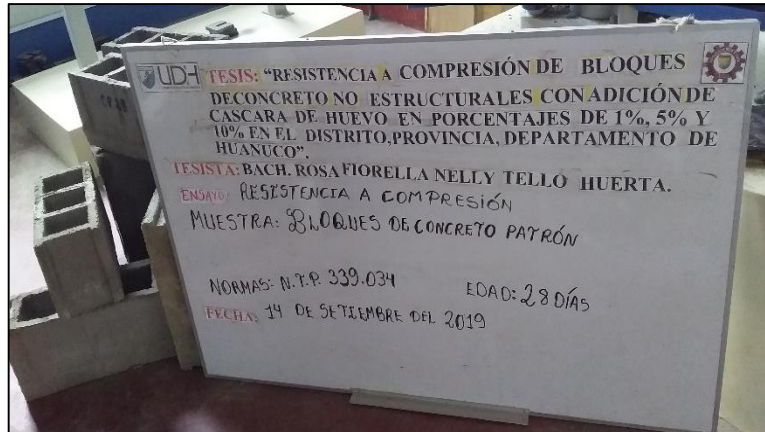 UDH TESIS: "RESISTENCIA A COMPRESIÓN DE BLOQUES
DECONCRETO NO ESTRUCTURALES CON ADICIÓN DE
CASCARA DE HUEVO EN PORCENTAJES DE 1%, 5% Y
10% EN EL DISTRITO,PROVINCIA, DEPARTAMENTO DE
HUANUCO".
TESISTA: BACH. ROSA FIORELLA NELLY TELLO HUERTA.
ENSAYO: RESISTENCIA A COMPRESIÓN
MUESTRA: BLOQUES DE CONCRETO PATRÓN
NORMAS: N.T.P. 339.034 EDAD: 28 DÍAS
FECHA: 14 DE SETIEMBRE DEL 2019